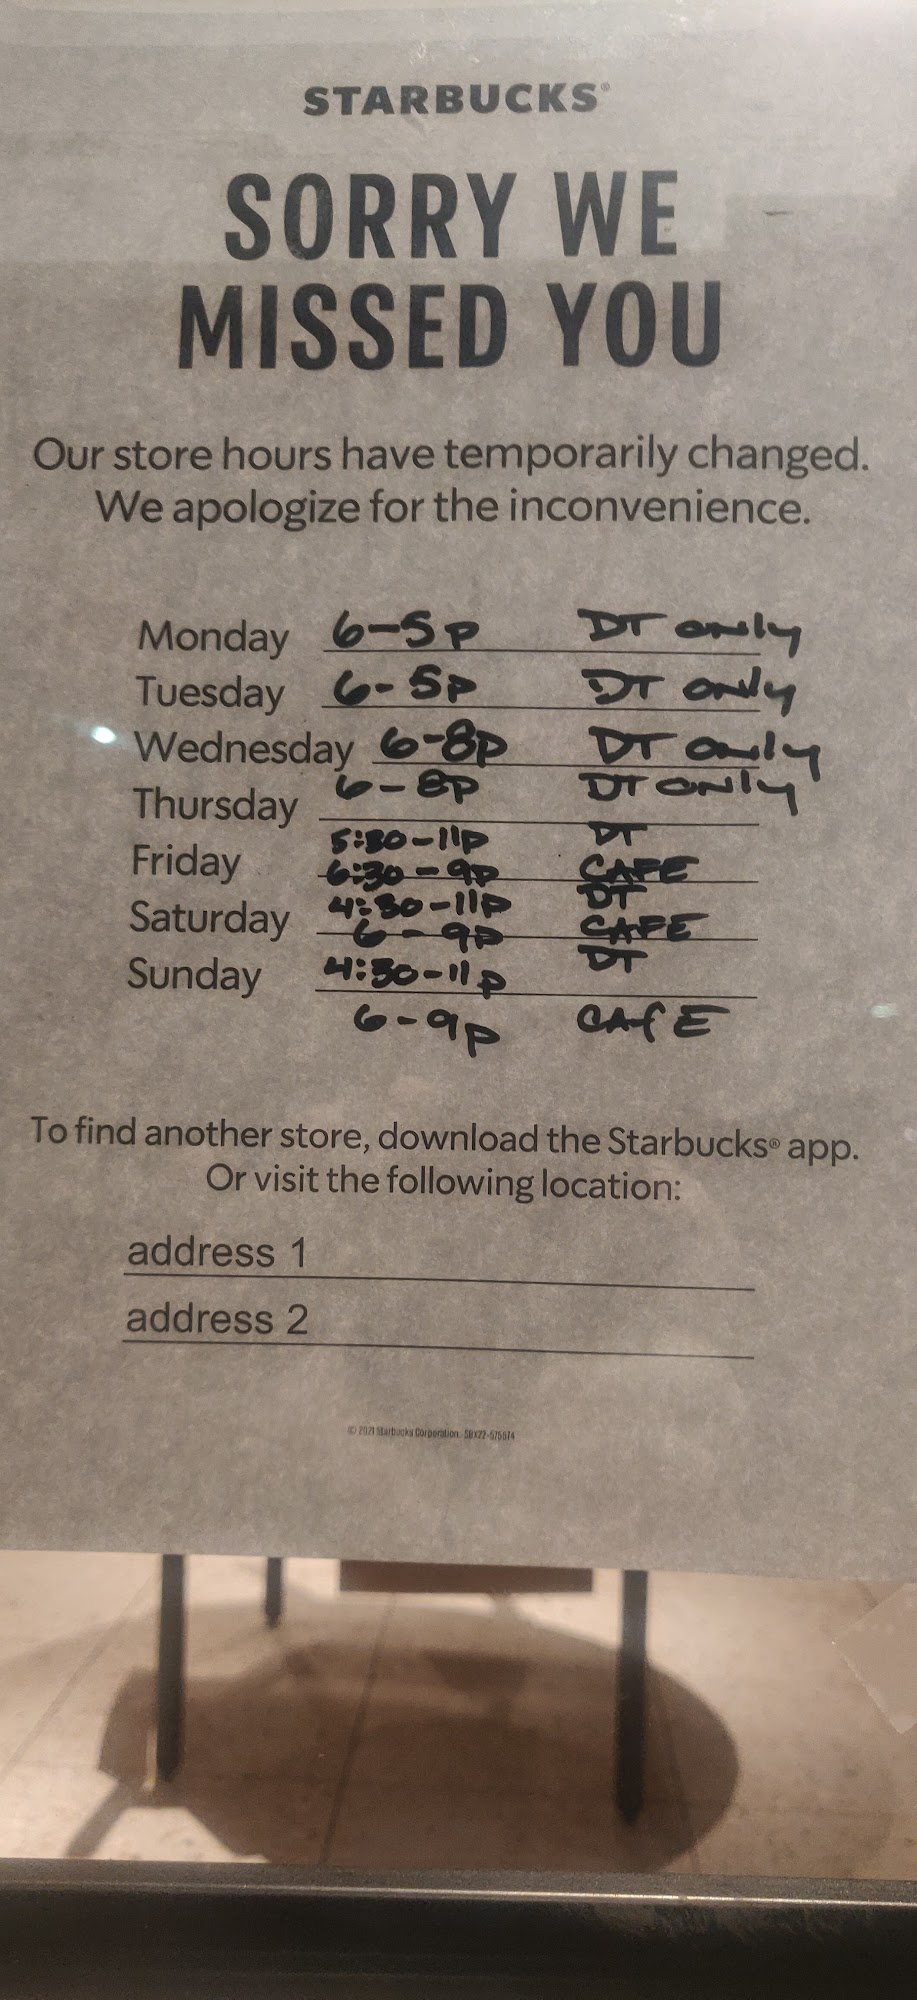 STARBUCKS®
SORRY WE
MISSED YOU
Our store hours have temporarily changed.
We apologize for the inconvenience.
Monday 6-5p DT only
Tuesday 6-5p DT only
Wednesday 6-8p DT only
Thursday 6-8p DT only
5:30-11p DT
Friday 6:30-9p CAFE
4:30-11p DT
Saturday 6-9p CAFE
Sunday 4:30-11p DT
6-9p CAfE
To find another store, download the Starbucks® app.
Or visit the following location:
address 1
address 2
© 2021 Starbucks Corporation.